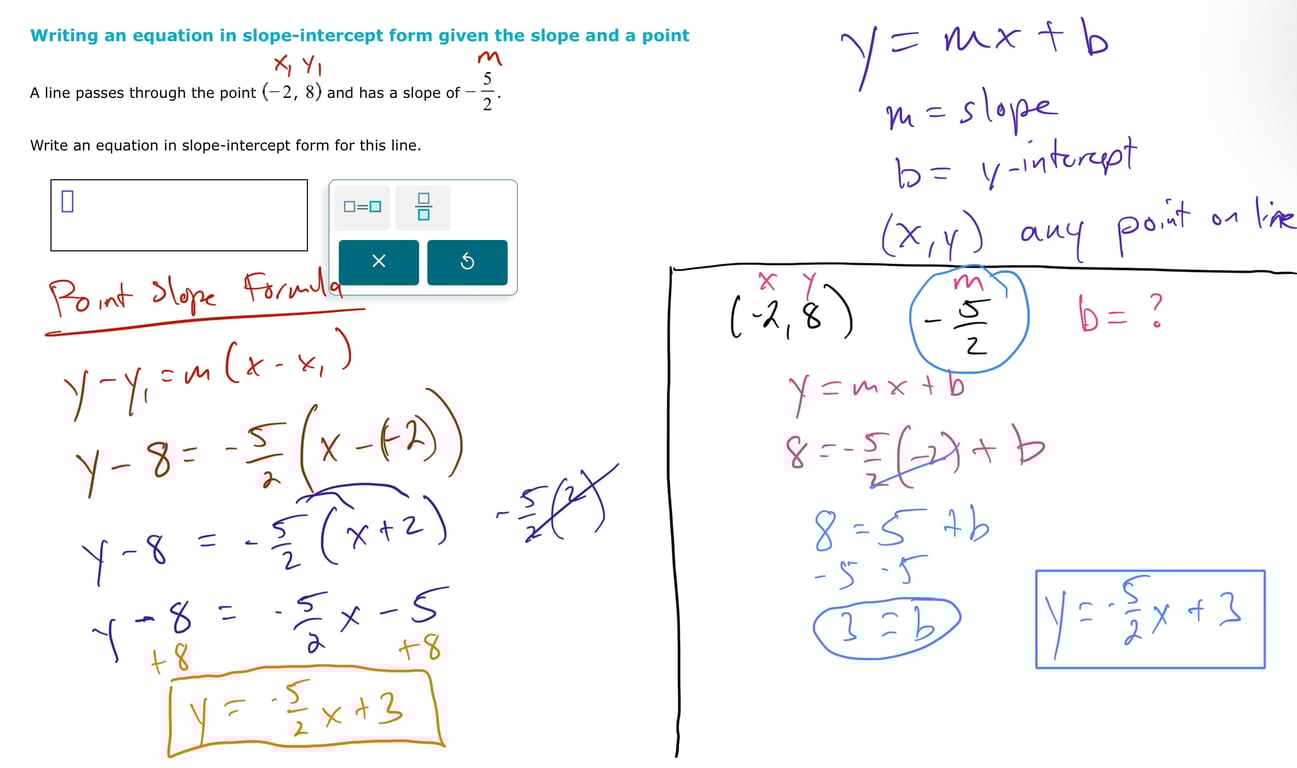 Writing an equation in slope-intercept form given the slope and a point
x₁ y₁ m
A line passes through the point (−2, 8) and has a slope of −5/2.
Write an equation in slope-intercept form for this line.
□=□
□/□
×
Point Slope Formula
y-y₁=m(x-x₁)
y-8=-5/2(x-(-2))
y-8=-5/2(x+2) -5/2(2)
y-8=-5/2x-5
+8 +8
y=-5/2x+3
y=mx+b
m=slope
b=y-intercept
(x,y) any point on line
x y m
(-2,8) -5/2 b=?
y=mx+b
8=-5/2(-2)+b
8=5+b
-5 -5
3=b
y=-5/2x+3